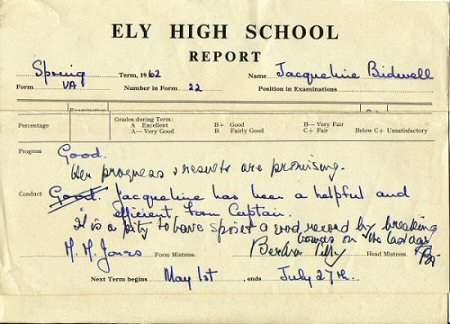 ELY HIGH SCHOOL
REPORT
Spring Term, 1962 Name Jacqueline Bidwell
Form VA Number in Form 22 Position in Examinations
Percentage Grades during Term: A Excellent B+ Good B— Very Fair
A— Very Good B Fairly Good C+ Fair Below C+ Unsatisfactory
Progress Good.
Her progress & results are promising.
Conduct Good. Jacqueline has been a helpful and
efficient Form Captain.
It is a pity to have spoilt a good record by breaking
bounds on the last day
M. M. Jones Form Mistress. Bertha Tilly Head Mistress.
Next Term begins May 1st ends July 27th.